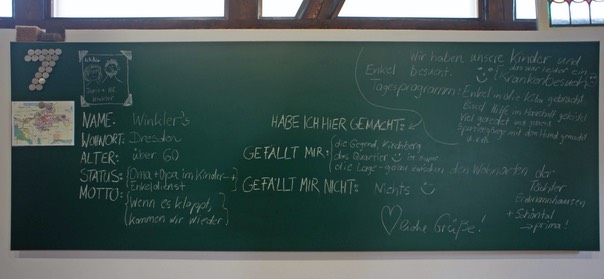 7
NAME: Winkler's
WOHNORT: Dresden
ALTER: über 60
STATUS: Oma + Opa im Kinder- + Enkeldienst
MOTTO: Wenn es klappt, kommen wir wieder
HABE ICH HIER GEMACHT:
Wir haben unsere Kinder und
Enkel besucht.
(Krankenbesuch)
Tagesprogramm: Enkel in die Kita gebracht
Bissl Hilfe im Haushalt geleistet
Viel geredet und
Spaziergänge mit dem Hund gemacht
GEFÄLLT MIR: die Gegend, Kirchberg
das Quartier ist super
die Lage - genau zwischen den Wohnorten der
Töchter
+ Schöntal
→ prima!
GEFÄLLT MIR NICHT: Nichts
Liebe Grüße!